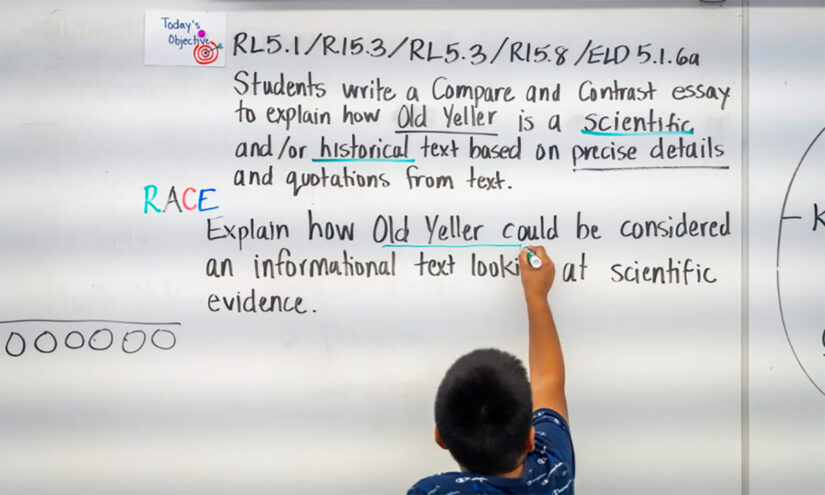 Today's
Objective
RL5.1/RI5.3/RL5.3/RI5.8/ELD 5.1.6a
Students write a Compare and Contrast essay
to explain how Old Yeller is a scientific
and/or historical text based on precise details
and quotations from text.
RACE
Explain how Old Yeller could be considered
an informational text at scientific
evidence.
K